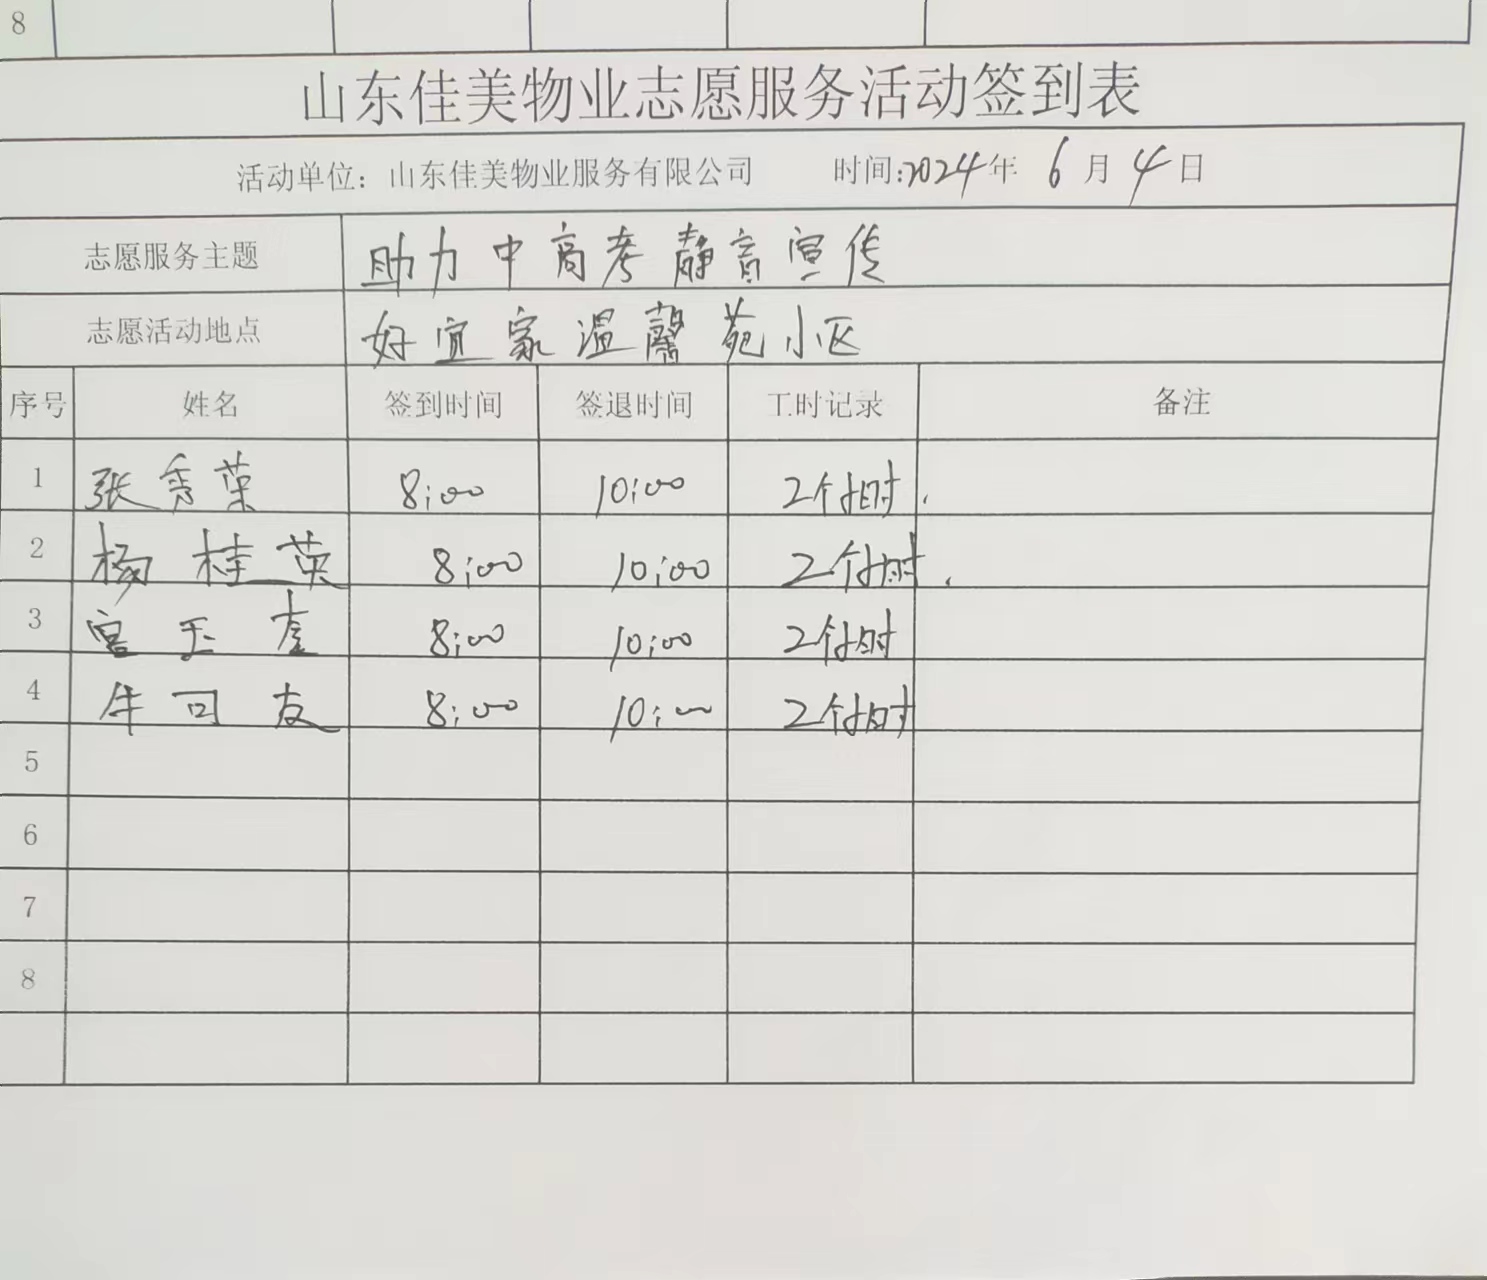 8
山东佳美物业志愿服务活动签到表
活动单位：山东佳美物业服务有限公司 时间:2024年 6月4日
志愿服务主题 助力中高考静音宣传
志愿活动地点 好宜家温馨苑小区
序号 姓名 签到时间 签退时间 工时记录 备注
1 张秀荣 8:00 10:00 2个小时.
2 杨桂英 8:00 10:00 2个小时.
3 宫玉奎 8:00 10:00 2个小时
4 牛司友 8:00 10:00 2个小时
5
6
7
8